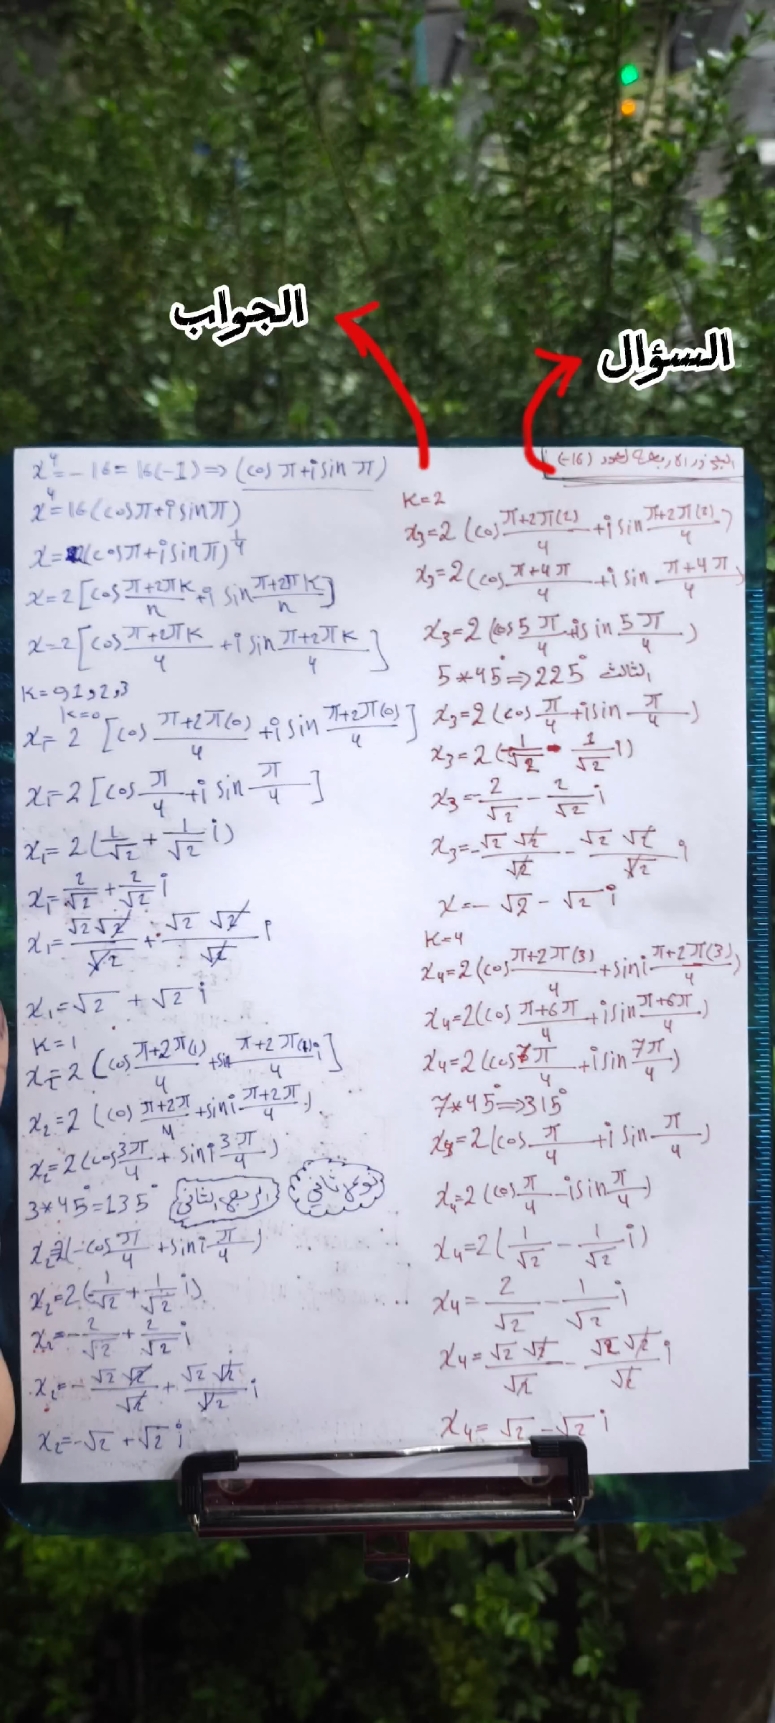 الجواب
السؤال
الجذور الاربعة للعدد (-16)
x⁴=-16=16(-1)⇒(cos π+i sin π)
x⁴=16(cosπ+i sinπ)
x=2(cosπ+i sinπ)^¼
x=2[cos (π+2πK)/n +i sin (π+2πK)/n]
x=2[cos (π+2πK)/4 +i sin (π+2πK)/4]
K=0,1,2,3
K=0
x₁=2 [cos (π+2π(0))/4 +i sin (π+2π(0))/4]
x₁=2[cos π/4 +i sin π/4]
x₁=2(1/√2 + 1/√2 i)
x₁=2/√2 + 2/√2 i
x₁=√2 √2/√2 + √2 √2/√2 i
x₁=√2 + √2 i
K=1
x₂=2 (cos (π+2π(1))/4 +sin (π+2π(1))/4 i]
x₂=2 (cos (π+2π)/4 +sin i (π+2π)/4)
x₂=2(cos 3π/4 + sin i 3π/4)
3*45°=135° الربع الثاني
x₂=2(-cos π/4 +sin i π/4)
x₂=2(-1/√2 + 1/√2 i)
x₂=-2/√2 + 2/√2 i
x₂=-√2 √2/√2 + √2 √2/√2 i
x₂=-√2 +√2 i
K=2
x₃=2 (cos (π+2π(2))/4 +i sin (π+2π(2))/4)
x₃=2(cos (π+4π)/4 +i sin (π+4π)/4)
x₃=2(cos 5π/4 +i sin 5π/4)
5*45°⇒225° الثالث
x₃=2(cos π/4 +i sin π/4)
x₃=2(-1/√2 - 1/√2 i)
x₃=-2/√2 - 2/√2 i
x₃=-√2 √2/√2 - √2 √2/√2 i
x=-√2 -√2 i
K=4
x₄=2(cos (π+2π(3))/4 +sin i (π+2π(3))/4)
x₄=2(cos (π+6π)/4 +i sin (π+6π)/4)
x₄=2(cos 7π/4 +i sin 7π/4)
7*45°⇒315°
x₄=2(cos π/4 +i sin π/4)
x₄=2(cos π/4 -i sin π/4)
x₄=2(1/√2 - 1/√2 i)
x₄=2/√2 - 1/√2 i
x₄=√2 √2/√2 - √2 √2/√2 i
x₄=√2 -√2 i